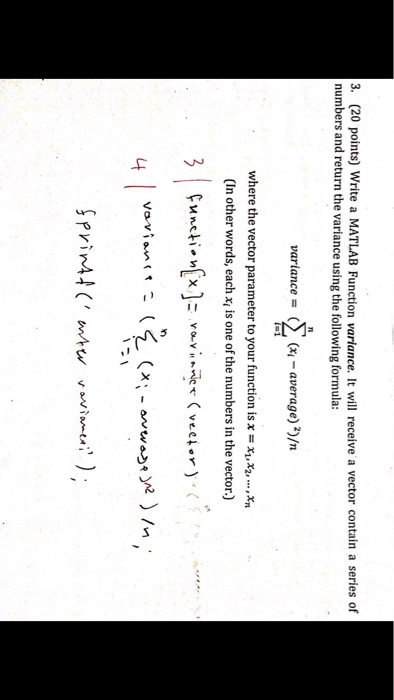 3. (20 points) Write a MATLAB Function variance. It will receive a vector contain a series of
numbers and return the variance using the following formula:
variance = (∑ⁿᵢ₌₁ (xᵢ − average)²)/n
where the vector parameter to your function is x = x₁, x₂, ..., xₙ
(In other words, each xᵢ is one of the numbers in the vector.)
3 | function[x] = variance (vector)
4 | variance = (∑ⁿᵢ₌₁ (xᵢ - average)^2) / n ;
fprintf('enter variance:');